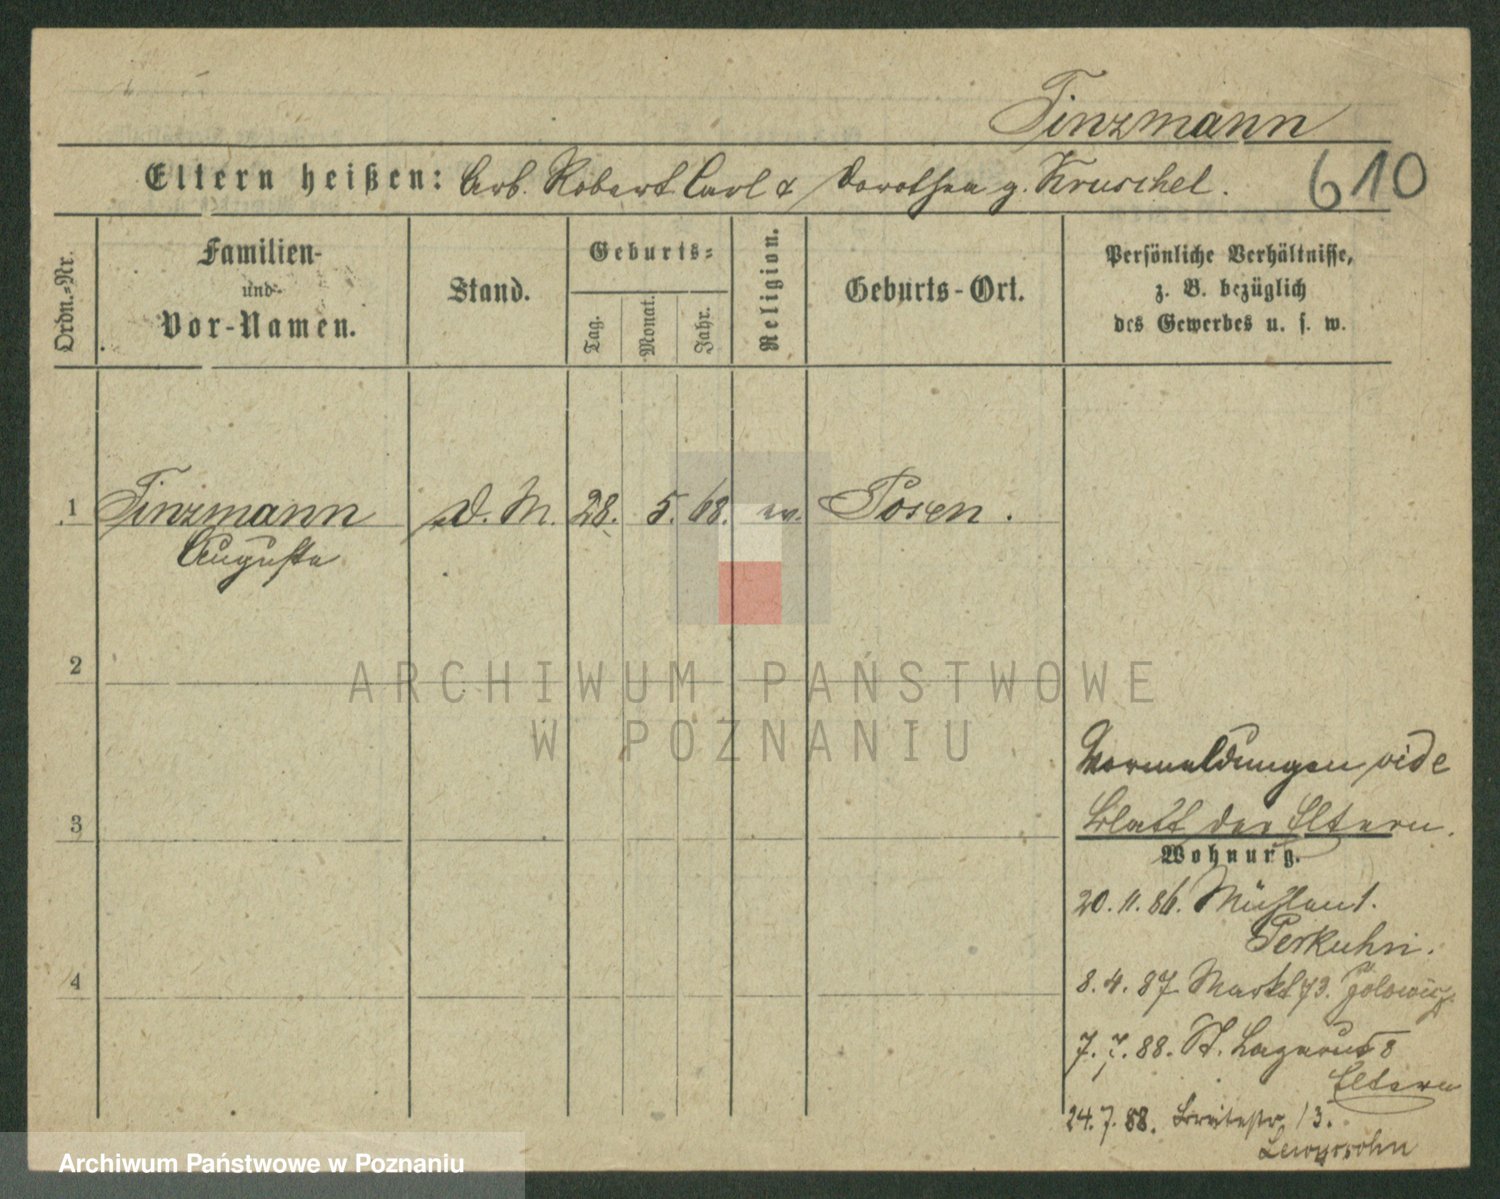 Tinzmann
Eltern heißen: Arb. Robert Carl & Dorothea g. Kruschel.
610
Ordn.-Nr.
Familien-
und
Vor-Namen.
Stand.
Geburts-
Tag.
Monat.
Jahr.
Religion.
Geburts-Ort.
Persönliche Verhältnisse,
z. B. bezüglich
des Gewerbes u. s. w.
1 Tinzmann D. M. 28. 5. 68. ev. Posen.
Auguste
2
3
4
Vormeldungen vide
Blatt der Eltern.
Wohnung.
20. 11. 86. Mühlenst.
Perkuhn.
8. 4. 87 Markt 73. Jolowicz
7. 7. 88. St. Lazarus 8
Eltern
24. 7. 88. Breitestr. 13.
Lewyssohn
ARCHIWUM PAŃSTWOWE
W POZNANIU
Archiwum Państwowe w Poznaniu